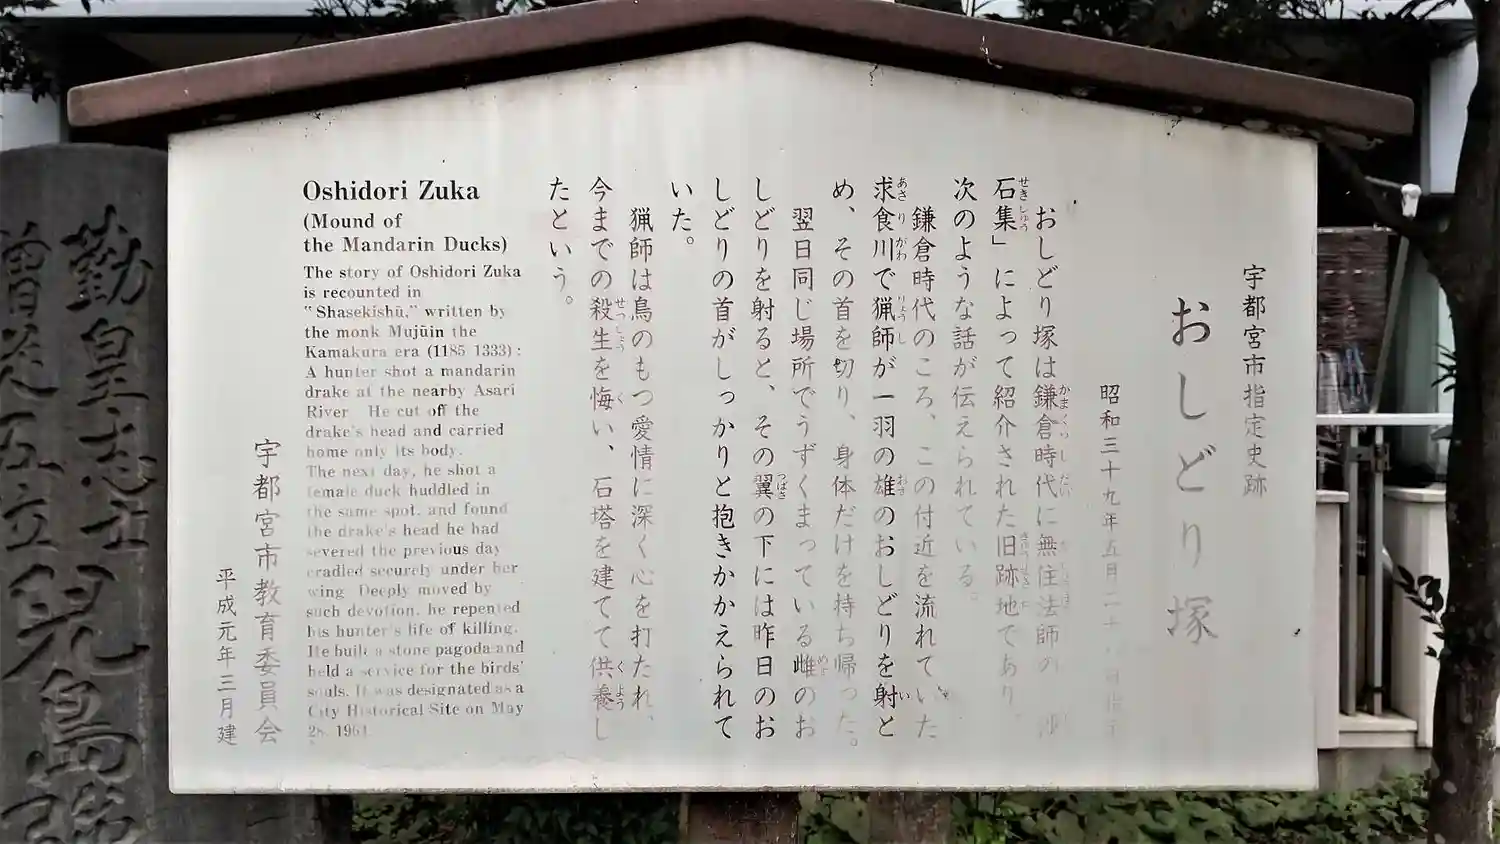 宇都宮市指定史跡
おしどり塚
昭和三十九年五月二十八日指定
おしどり塚は鎌倉時代に無住法師の「沙
石集」によって紹介された旧跡地であり、
次のような話が伝えられている。
鎌倉時代のころ、この付近を流れていた
求食川で猟師が一羽の雄のおしどりを射と
め、その首を切り、身体だけを持ち帰った。
翌日同じ場所でうずくまっている雌のお
しどりを射ると、その翼の下には昨日のお
しどりの首がしっかりと抱きかかえられて
いた。
猟師は鳥のもつ愛情に深く心を打たれ、
今までの殺生を悔い、石塔を建てて供養し
たという。
Oshidori Zuka
(Mound of
the Mandarin Ducks)
The story of Oshidori Zuka
is recounted in
"Shasekishū," written by
the monk Mujūin the
Kamakura era (1185 1333):
A hunter shot a mandarin
drake at the nearby Asari
River He cut off the
drake's head and carried
home only its body.
The next day, he shot a
female duck huddled in
the same spot, and found
the drake's head he had
severed the previous day
cradled securely under her
wing. Deeply moved by
such devotion, he repented
his hunter's life of killing.
He built a stone pagoda and
held a service for the birds'
souls. It was designated as a
City Historical Site on May
28, 1964.
宇都宮市教育委員会
平成元年三月建
勤皇志士
兒島